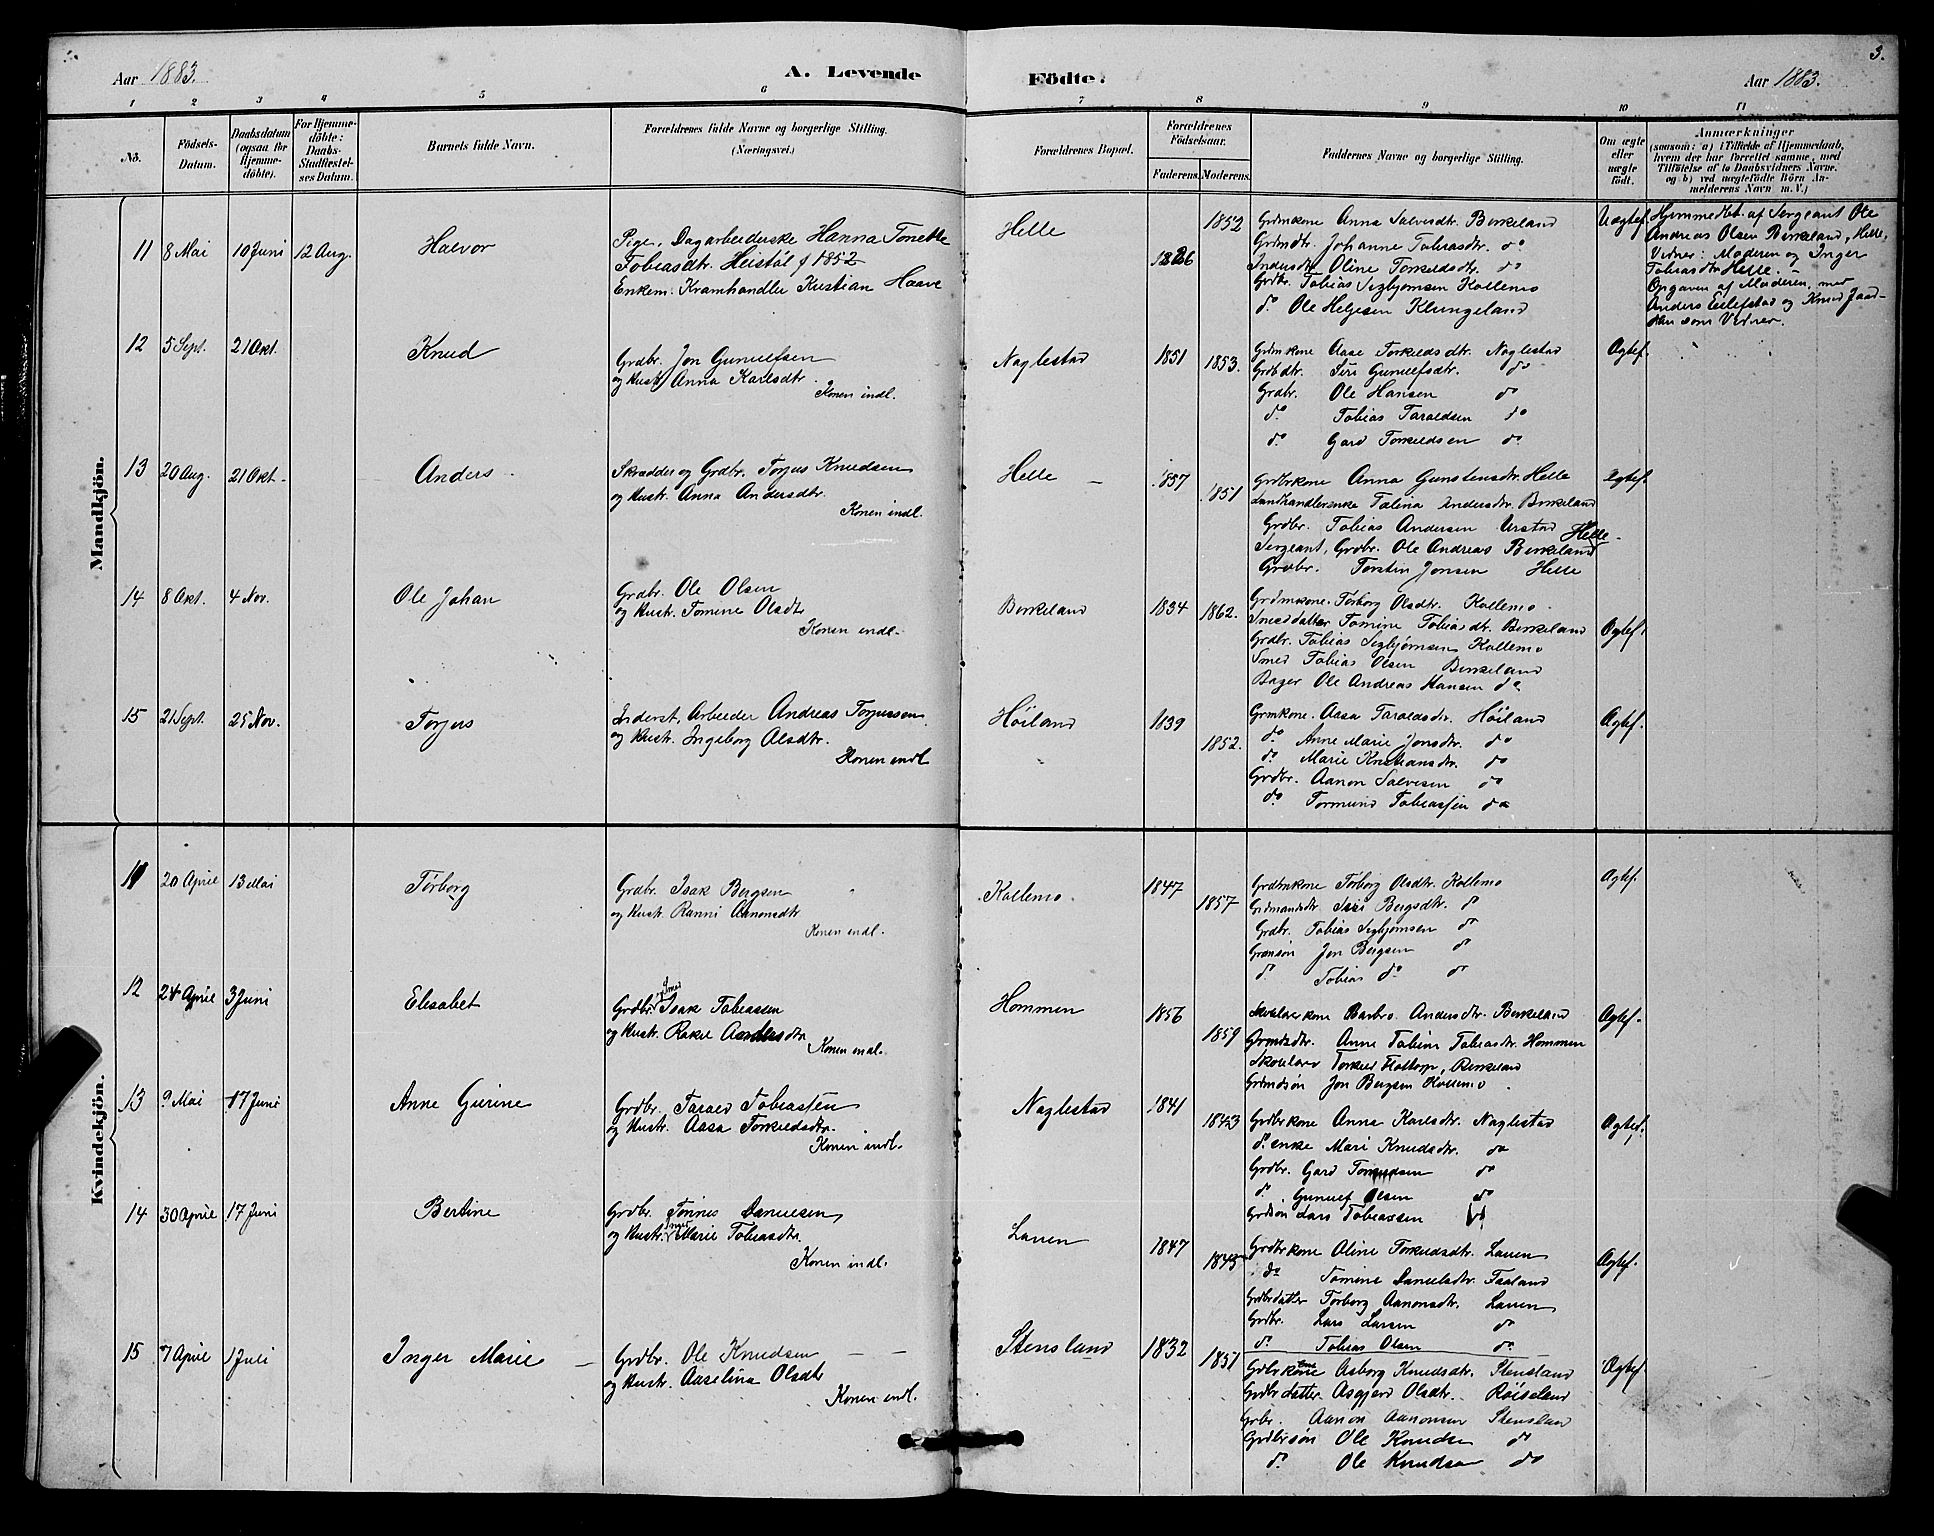 Aar 1883.
A. Levende Födte.
3.
Aar 1883.
1 2 3 4 5 6 7 8 9 10 11
No.
Födsels-Datum.
Daabsdatum (ogsaa for Hjemme-döbte).
For Hjemme-döbte: Daabs-Stadfæstel-ses Datum.
Barnets fulde Navn.
Forældrenes fulde Navne og borgerlige Stilling.
(Næringsvei.)
Forældrenes Bopæl.
Forældrenes Födselsaar.
Faderens. Moderens.
Faddernes Navne og borgerlige Stilling.
Om ægte eller uægte födt.
Anmærkninger
(saasom: a) i Tilfælde af Hjemmedaab, hvem der har forrettet samme, med Tilföielse af to Daabsvidners Navne, og b) ved uægtefödte Börn An-melderens Navn m. V.)
Mandkjön.
11 8 Mai 10 Juni 12 Aug. Halvor
Pige, Dagarbeiderske Hanna Tonette
Tobiasdtr. Heistøl f 1852
Enkem: Kramhandler Kristian Haave
Helle 1826 1852
Grdmkone Anna Salvesdtr. Birkeland
Grdmdtr. Johanne Tobiasdtr. do
Inderstdtr. Oline Torkeldsdtr. do
Grdbr. Tobias Sigbjørnsen Kollemo
do. Ole Helgesen Klungeland
Uægtef.
Hjemmedbt. af Sergeant Ole
Andreas Olsen Birkeland, Helle,
Vidner: Moderen og Inger
Tobiasdtr Helle. –
Opgaven af Moderen, med
Anders Eilefstad og Knud
som Vidner.
12 5 Sept. 21 Okt. Knud
Grdbr. Jon Gunulfsen
og Hustr. Anna Karlsdtr.
Konen indl.
Naglestad 1851 1853.
Grdmkone Aase Torkeldsdtr. Naglestad
Grdbdtr. Siri Gunulfsdtr. do
Grdbr. Ole Hansen do
do. Tobias Taraldsen do
do. Gard Torkeldsen do
Ægtef.
13 20 Aug. 21 Okt. Anders
Skrædder og Grdbr. Torjus Knudsen
og Hustr. Anna Andersdtr.
Konen indl.
Helle 1857 1851
Grdbrkone Anna Gunstensdtr. Helle
Landhandlerenke Talina Andersdtr. Birkeland
Grdbr. Tobias Andersen Urstad
Sergeant, Grdbr. Ole Andreas Birkeland Helle
Grdbr. Torstin Jonsen Helle
Ægtef.
14 8 Okt. 4 Nov. Ole Johan
Grdbr. Ole Olsen
og Hustr. Tomine Olsdtr
Konen indl.
Birkeland 1834 1862.
Grdmkone. Torborg Olsdtr. Kollemo
Smeddatter Tomine Tobiasdtr. Birkeland
Grdbr. Tobias Sigbjørnsen Kollemo
Smed Tobias Olsen Birkeland
Bager Ole Andreas Hansen do
Ægtef.
15 21 Sept. 25 Nov. Torjus
Inderst, Arbeider Andreas Torjussen
og Hustr. Ingeborg Olsdtr.
Konen indl
Høiland 1839 1852.
Grmkone. Aasa Taraldsdtr. Høiland
do. Anne Marie Jonsdtr. do
do. Marie Kristiansdtr. do
Grdbr. Aanon Salvesen do
do. Tormund Tobiassen do
Ægtef.
Kvindekjön.
11 20 April 13 Mai Torborg
Grdbr. Isak Bergsen
og Hustr. Ranni Aanonsdtr
Konen indl.
Kollemo 1847 1857
Grdmkone Torborg Olsdtr. Kollemo
Grdmandsdtr. Siri Bergsdtr. do
Grdbr. Tobias Sigbjørnsen do
Grdmsøn Jon Bergsen do
do. Tobias do do
Ægtef.
12 24 April 3 Juni Elisabet
Grdbr. og Smed Isak Tobiassen
og Hustr. Rakel Aandersdtr
Konen indl.
Hommen 1856 1859
Skolelærerkone Barbro Andersdtr. Birkeland
Grdmdsdtr. Anne Tobine Tobiasdtr. Hommen
Skolelærer Torkel Birkeland
Grdmdsøn Jon Bergsen Kollemo.
Ægtef.
13 9 Mai 17 Juni Anne Gurine
Grdbr. Tarald Tobiassen
og Hustr. Aasa Torkeldsdtr.
Konen indl.
Naglestad 1841 1843
Grdbrkone Anna Karlsdtr. Naglestad
do. enke Mari Knudsdtr. do
Grdbr. Gard Torkeldsen do
do. Gunulf Olsen do
Grdsøn Lars Tobiassen do
Ægtef.
14 30 April 17 Juni Bertine
Grdbr. Tønnes Danielsen
og Hustr. Marie Tobiasdtr.
Konen indl.
Lauen 1847 1845
Grdbrkone Oline Torkeldsdtr. Lauen
do Tomine Danielsdtr. Faaland
Grdbrdatter Torborg Aanonsdtr. Lauen
Grdbr. Lars Larsen do
do. Tobias Olsen do
Ægtef.
15 7 April 1 Juli Inger Marie –
Grdbr. Ole Knudsen
og Hustr. Aaselina Olsdtr
Konen indl.
Stensland 1832 1851
Grdbrkone Aasborg Knudsdtr. Stensland
Grdbrdatter Asgjerd Olsdtr. Røiseland
Grbr. Aanon Aanonsen Stensland
Grdbrsøn Ole Knudsen do
do. Ole Knudsen do
Ægtef.